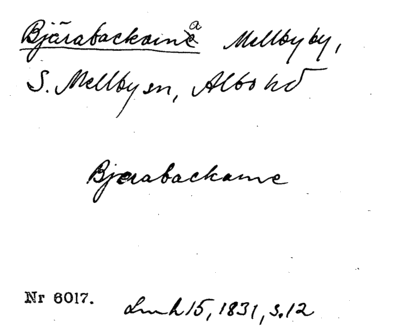 Bjärabackarna Mellby by,
S. Mellby sn, Albo hd
Bjerabackarne
Nr 6017.
Lmh 15, 1831, s. 12